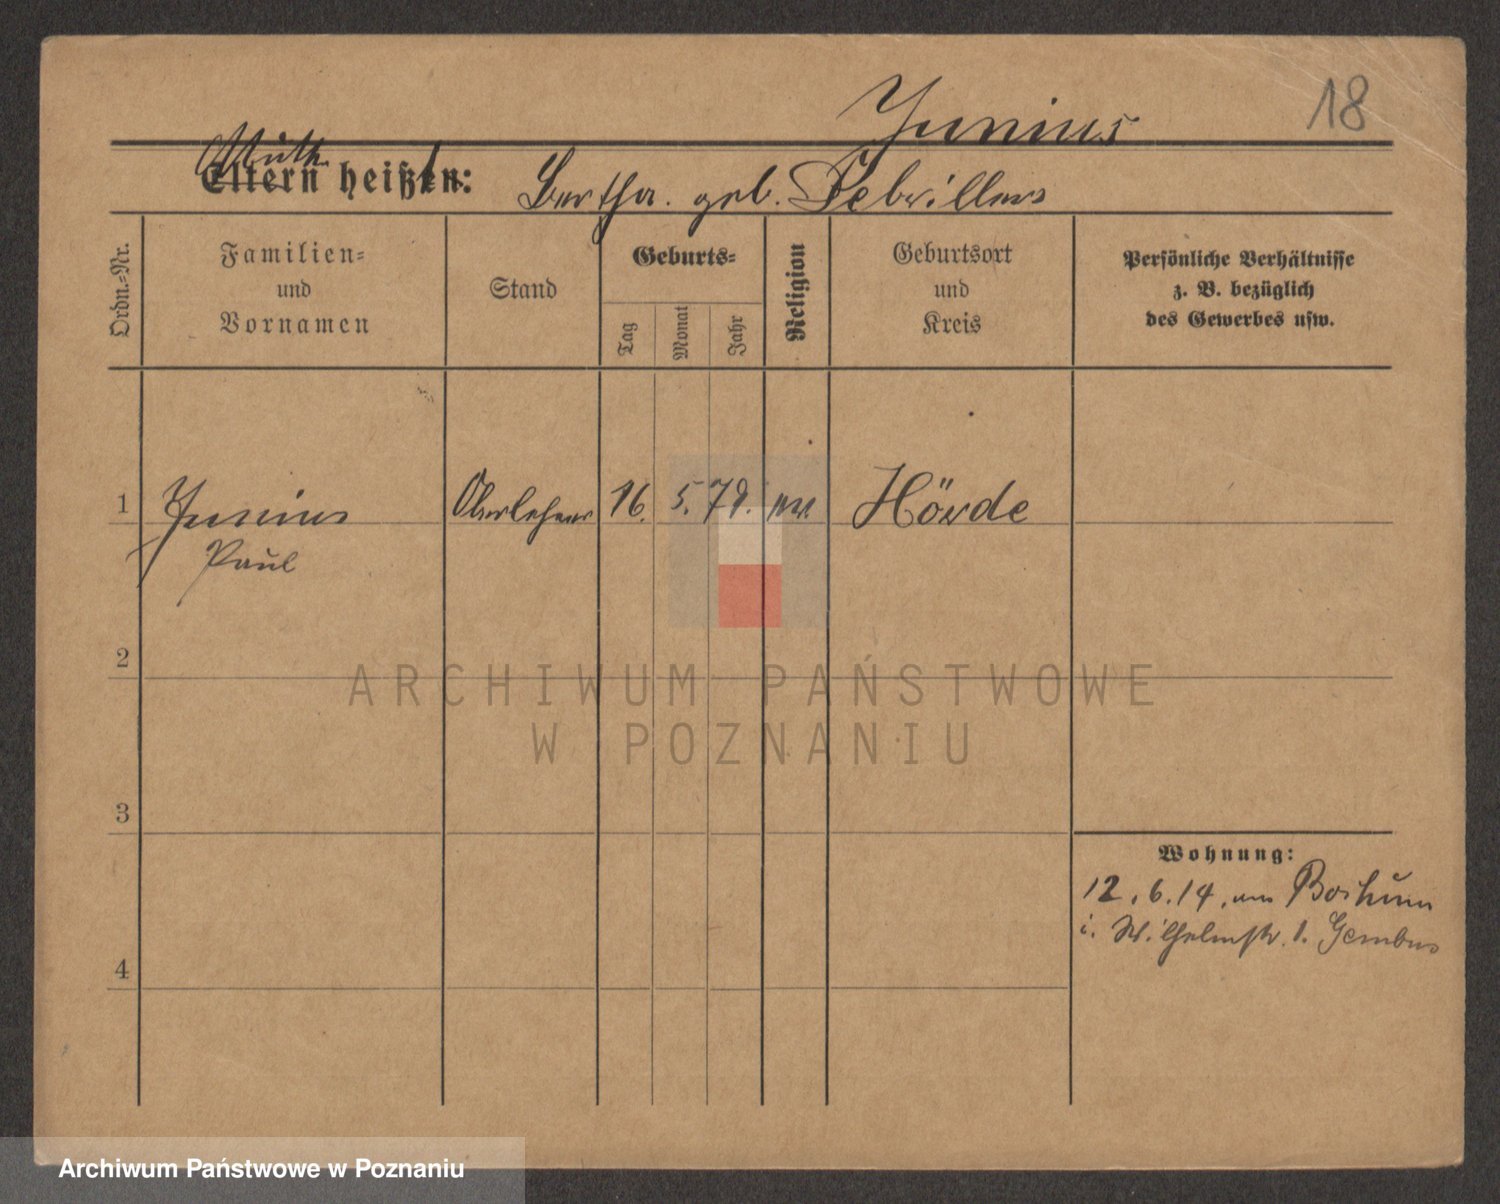 Junius
18
Mutt.
Eltern heißen:
Bertha. geb.
Ordn.=Nr.
Familien=
und
Vornamen
Stand
Geburts=
Tag
Monat
Jahr
Religion
Geburtsort
und
Kreis
Persönliche Verhältnisse
z. B. bezüglich
des Gewerbes usw.
1
Junius
Paul
Oberlehrer
16.
5.
79.
ev.
Hörde
2
ARCHIWUM PAŃSTWOWE
W POZNANIU
3
Wohnung:
12. 6. 14. von Bochum
i. Wilhelmstr. 1.
4
Archiwum Państwowe w Poznaniu